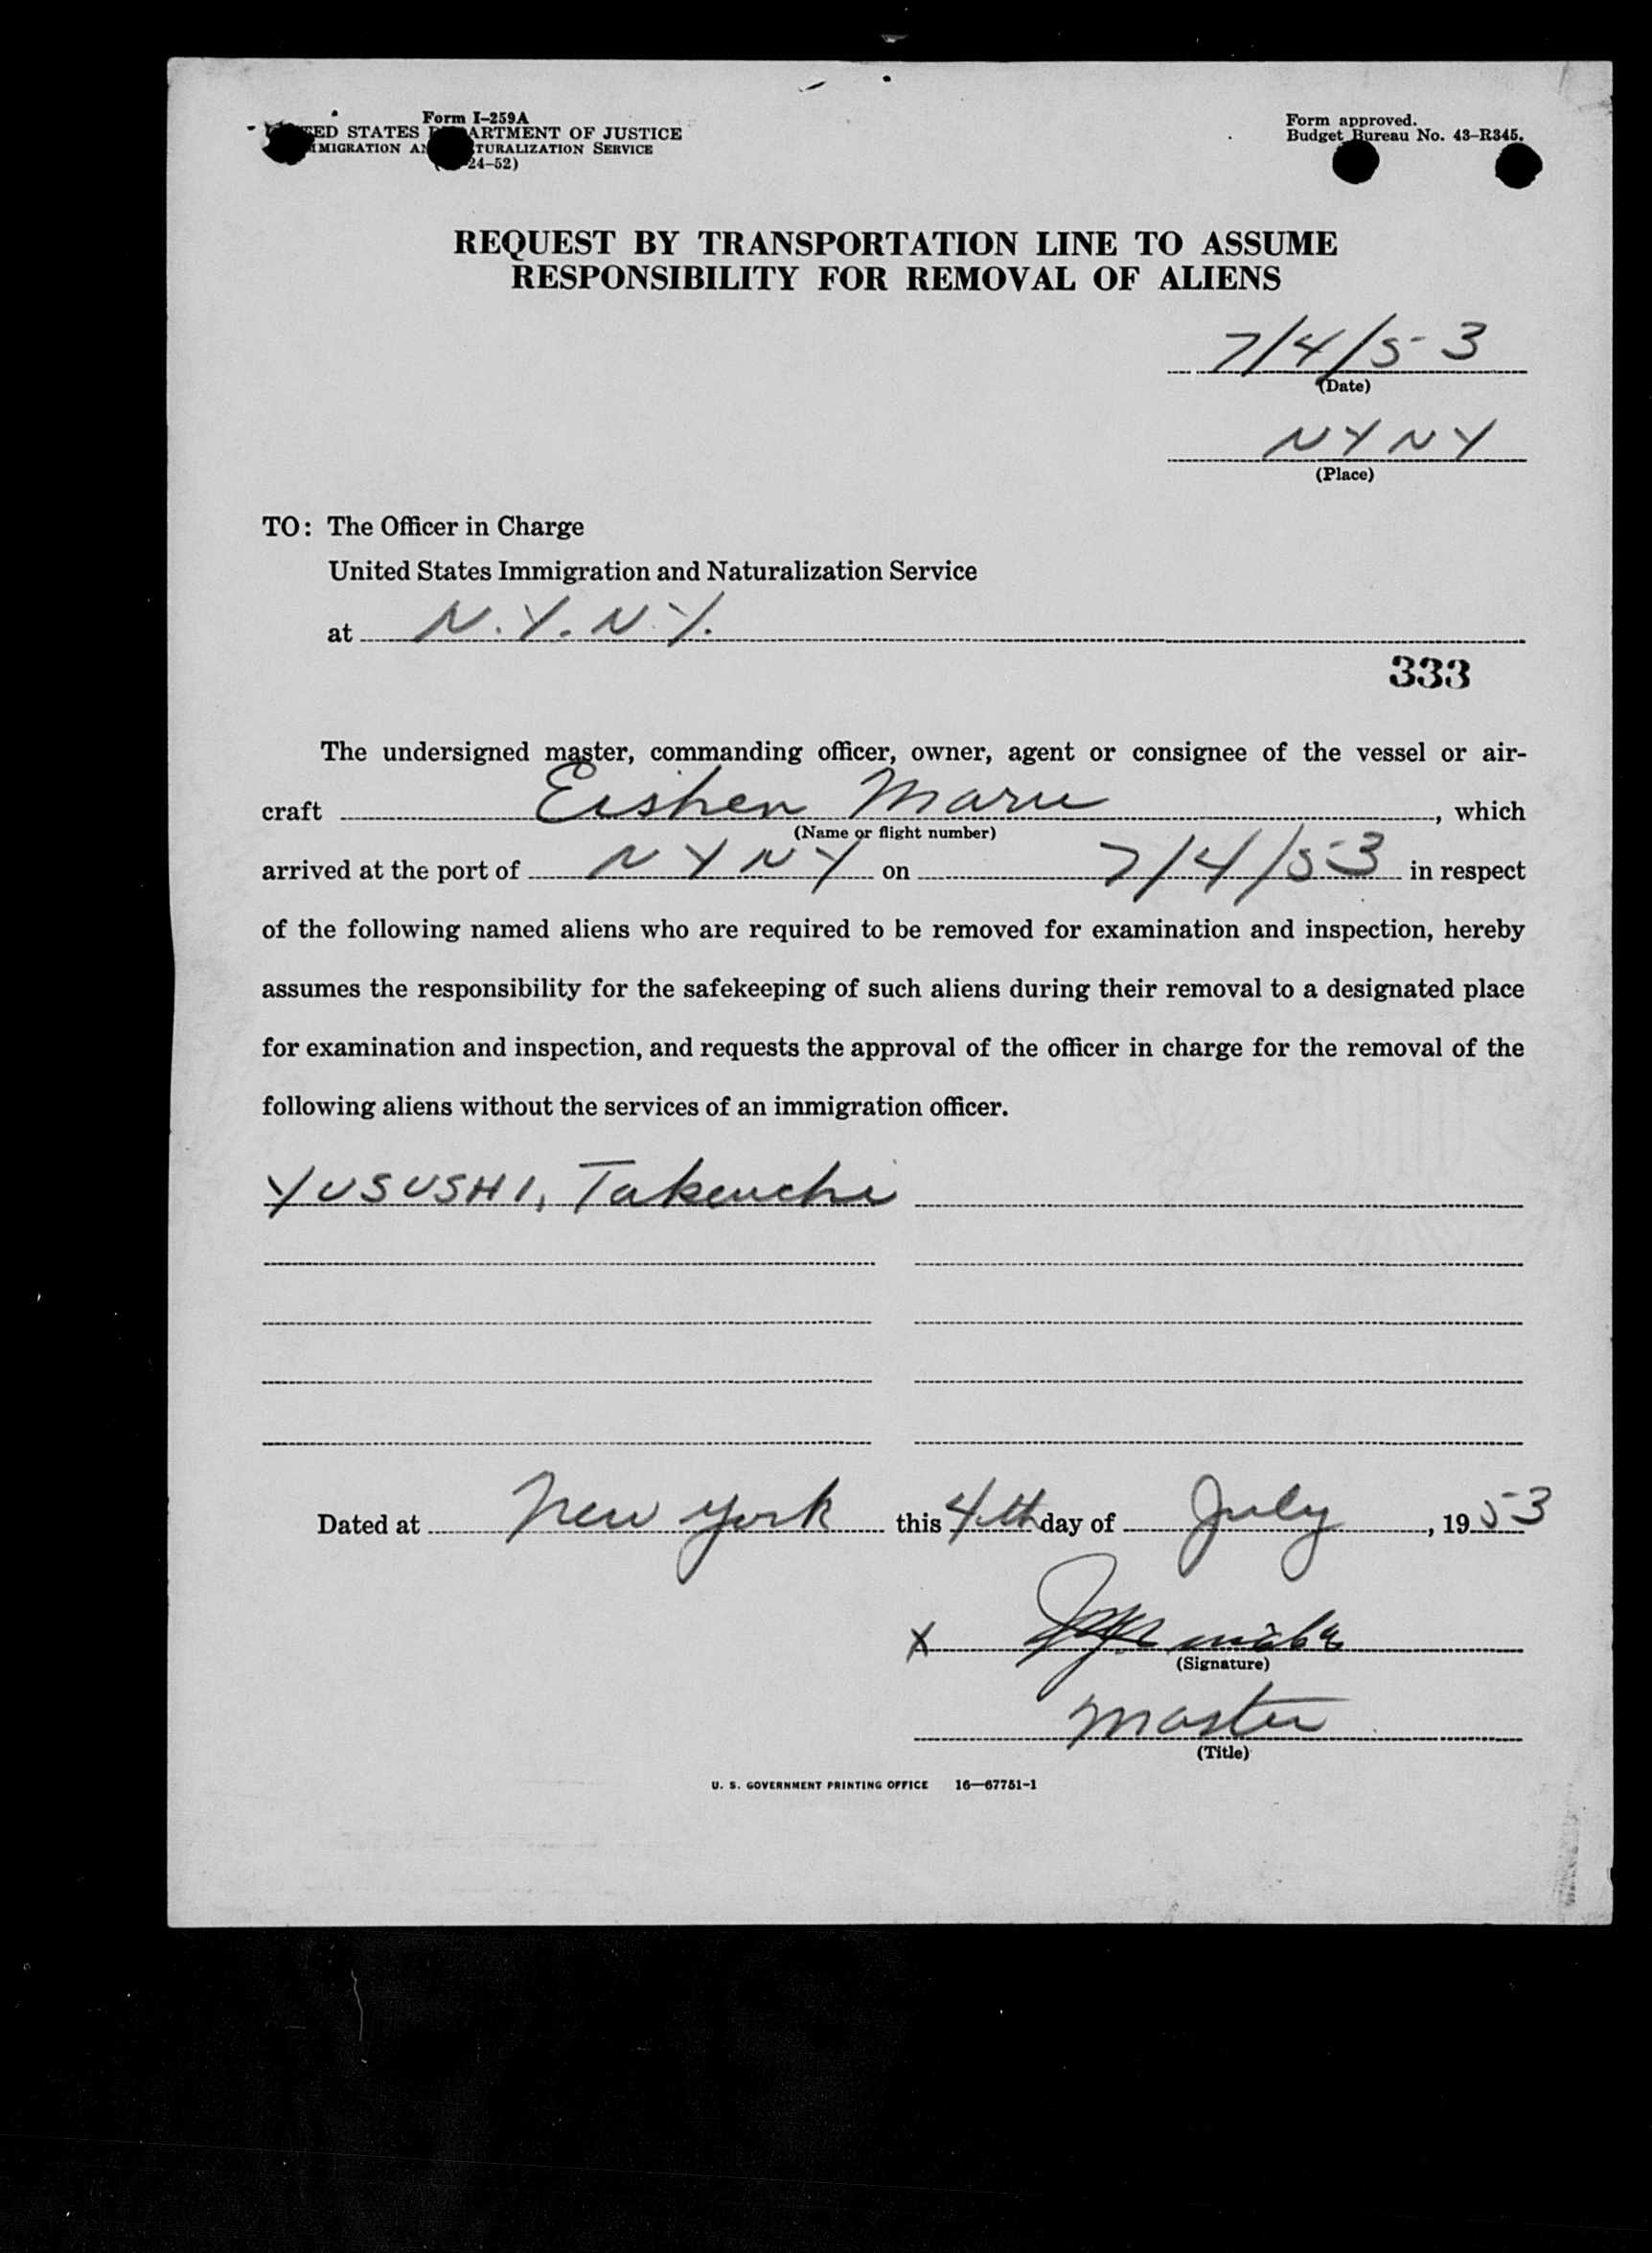 Form I-259A
ED STATES ARTMENT OF JUSTICE
MIGRATION AN TURALIZATION SERVICE
24-52)
Form approved.
Budget Bureau No. 43-R345.
REQUEST BY TRANSPORTATION LINE TO ASSUME
RESPONSIBILITY FOR REMOVAL OF ALIENS
7/4/53
(Date)
NYNY
(Place)
TO: The Officer in Charge
United States Immigration and Naturalization Service
at N.Y.N.Y.
333
The undersigned master, commanding officer, owner, agent or consignee of the vessel or air-
craft Eishen Maru, which
(Name or flight number)
arrived at the port of NYNY on 7/4/53 in respect
of the following named aliens who are required to be removed for examination and inspection, hereby
assumes the responsibility for the safekeeping of such aliens during their removal to a designated place
for examination and inspection, and requests the approval of the officer in charge for the removal of the
following aliens without the services of an immigration officer.
YUSUSHI, Takeuchi
Dated at New York this 4th day of July, 1953
X
(Signature)
Master
(Title)
U. S. GOVERNMENT PRINTING OFFICE 16—67751-1